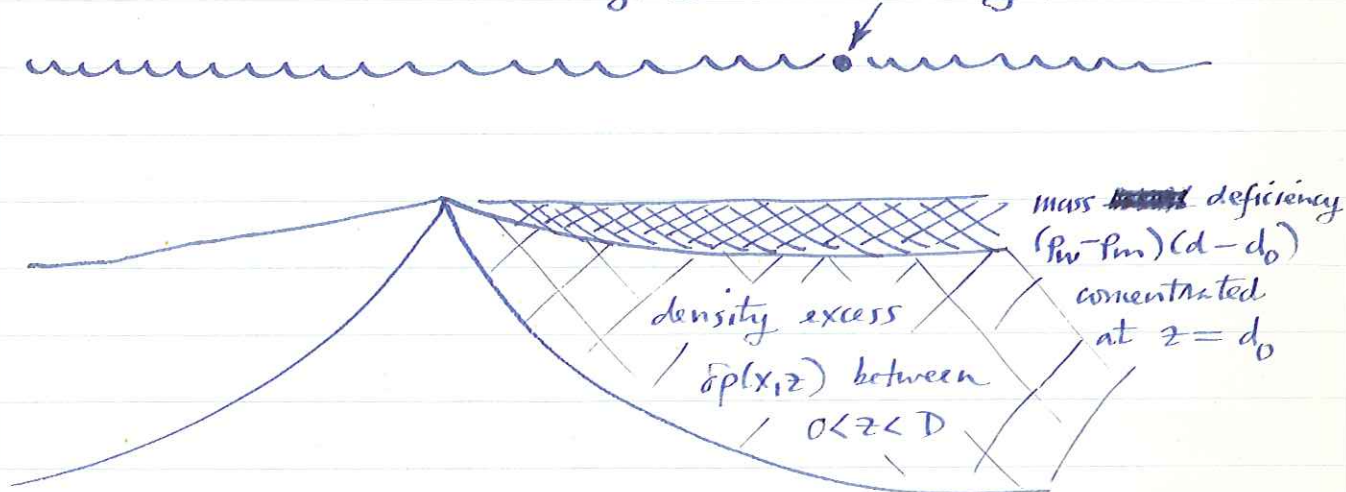 mass deficiency
(ρw-ρm)(d-d0)
concentrated
at z = d0
density excess
δρ(x,z) between
0<z<D